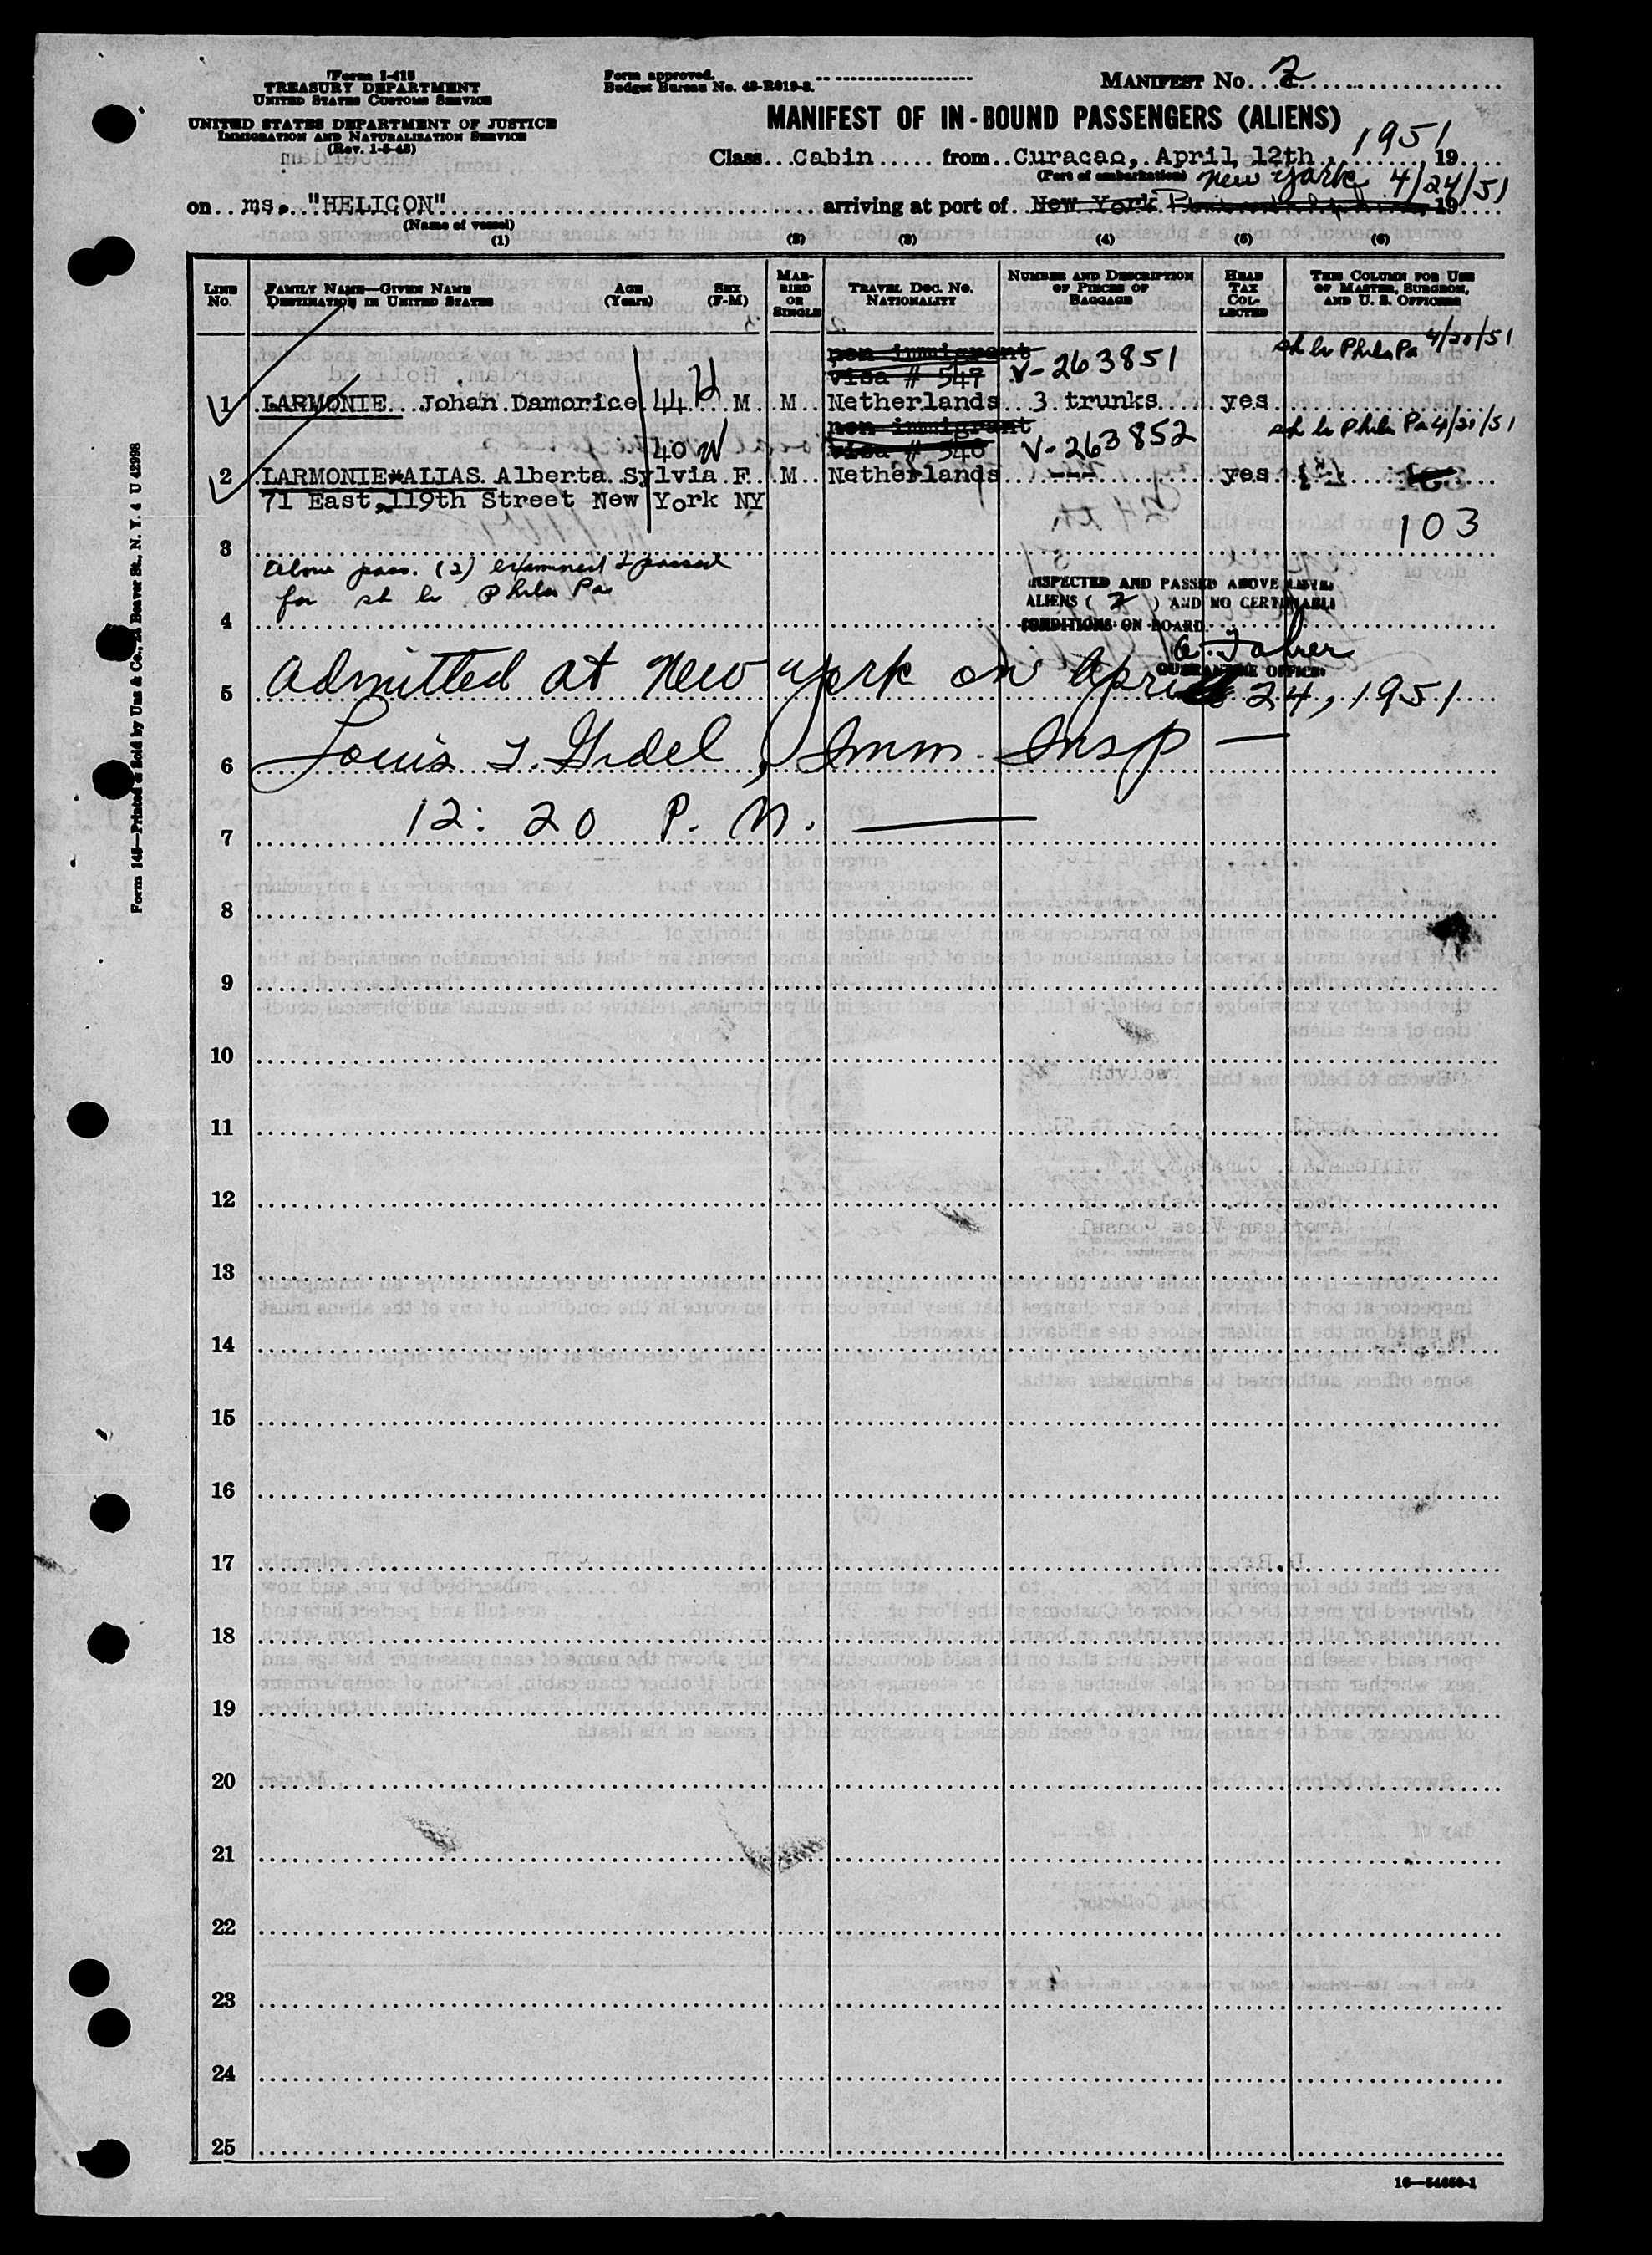 Form I-418
TREASURY DEPARTMENT
UNITED STATES CUSTOMS SERVICE
UNITED STATES DEPARTMENT OF JUSTICE
IMMIGRATION AND NATURALIZATION SERVICE
(Rev. 1-5-48)
Form approved.
Budget Bureau No. 43-R019-3.
MANIFEST No. 2
MANIFEST OF IN-BOUND PASSENGERS (ALIENS)
Class Cabin from Curacao, April 12th 1951, 19
(Port of embarkation)
New York 4/24/51
on ms. "HELICON" arriving at port of New York 19
(Name of vessel)
(1) (2) (3) (4) (5) (6)
LINE No.
FAMILY NAME—GIVEN NAME
DESTINATION IN UNITED STATES
AGE (Years)
SEX (F-M)
MARRIED OR SINGLE
TRAVEL DOC. NO.
NATIONALITY
NUMBER AND DESCRIPTION OF PIECES OF BAGGAGE
HEAD TAX COLLECTED
THIS COLUMN FOR USE OF MASTER, SURGEON, AND U. S. OFFICERS
non immigrant
visa # 547 V-263851 Phila Pa 4/20/51
1 LARMONIE Johan Damorice 44 M M Netherlands 3 trunks yes
non immigrant
40 W visa # 548 V-263852 Phila Pa 4/20/51
2 LARMONIE*ALIAS Alberta Sylvia F M Netherlands --- yes
71 East 119th Street New York NY
103
3
Above pass. (2) examined & passed
for Phila Pa
INSPECTED AND PASSED ABOVE
ALIENS ( 2 ) AND NO CERTIFIABLE
CONDITIONS ON BOARD.
4
QUARANTINE OFFICER
5 Admitted at New York on April 24, 1951
6 Louis Gidel, Imm. Insp —
7 12:20 P.M. —
8
9
10
11
12
13
14
15
16
17
18
19
20
21
22
23
24
25
Form 145—Printed & Sold by Unz & Co., 24 Beaver St., N. Y. 4 U 42998
16—54650-1